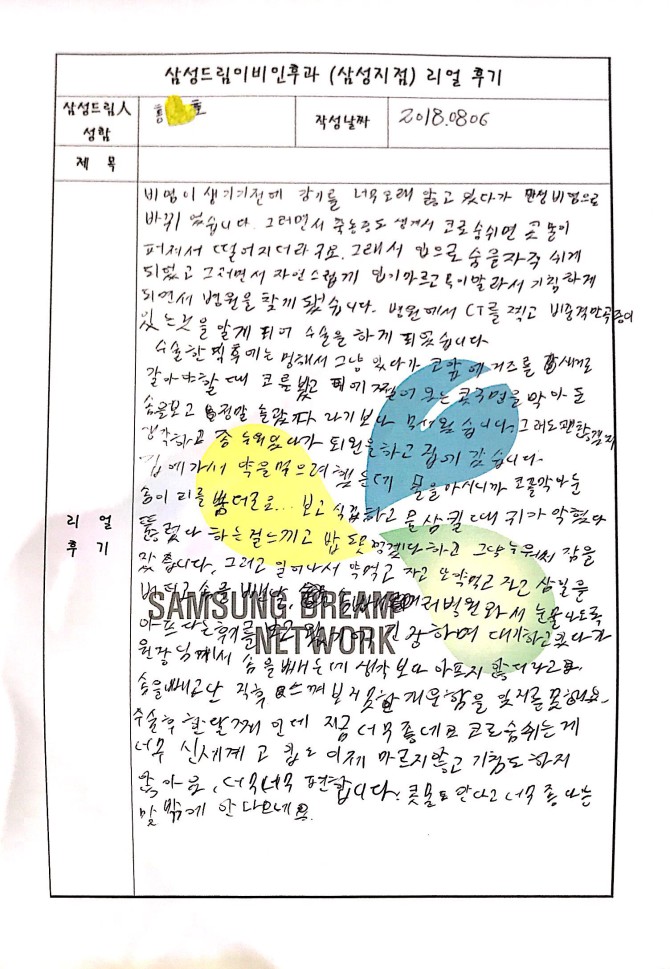 삼성드림이비인후과 (삼성지점) 리얼 후기
삼성드림人
성함
홍 호
작성날짜
2018.0806
제 목
리 얼
후 기
비염이 생기기전에 감기를 너무오래 앓고 있다가 만성비염으로
바뀌 었습니다. 그러면서 축농증도 생겨서 코로숨쉬면 콧물이
퍼져서 떨어지더라구요. 그래서 입으로 숨을자주 쉬게
되었고 그러면서 자연스럽게 입가마르고 목이말라서 기침하게
되면서 병원을 찾게 됐습니다. 병원에서 CT를 찍고 비중격만곡증이
있는것을 알게 되어 수술을 하게 되었습니다.
수술한 직후에는 멍해서 그냥 있다가 코앞에 거즈를 새로
갈아야할때 코를 보고 피에 쩔어 콧구멍을 막아둔
솜을보고 정말 놀랍다 라기보다 습니다. 그래도괜찮겠지
생각하고 좀 누워있다가 퇴원을하고 집에 갔습니다.
집에가서 약을먹으려 했는데 물을마시니까 코를막아둔
솜이 피를 보고 식겁하고 물삼킬때 귀가 막혔다
뚫렸다 하는걸느끼고 밥 도 못먹겠다하고 그냥누워서 잠을
잤습니다. 그리고 일어나서 약먹고 자고 또약먹고 자고 삼일을
버티고 솜을 빼러 병원와서 눈물나도록
아프다는후기를 보고 긴장하며 대기하고있다가
원장님께서 솜을빼는데 생각보다 아프지 않더라고요.
솜을빼고난 직후 느껴보지못한 개운함을 잊지를못해요.
수술후 한달째 인데 지금 너무좋네요 코로숨쉬는게
너무 신세계 고 입도 이제 마르지않고 기침도 하지
않아요, 너무너무 편합니다. 콧물도 안나고 너무 좋다는
말 밖에 안나오네요.
SAMSUNG DREAM
NETWORK